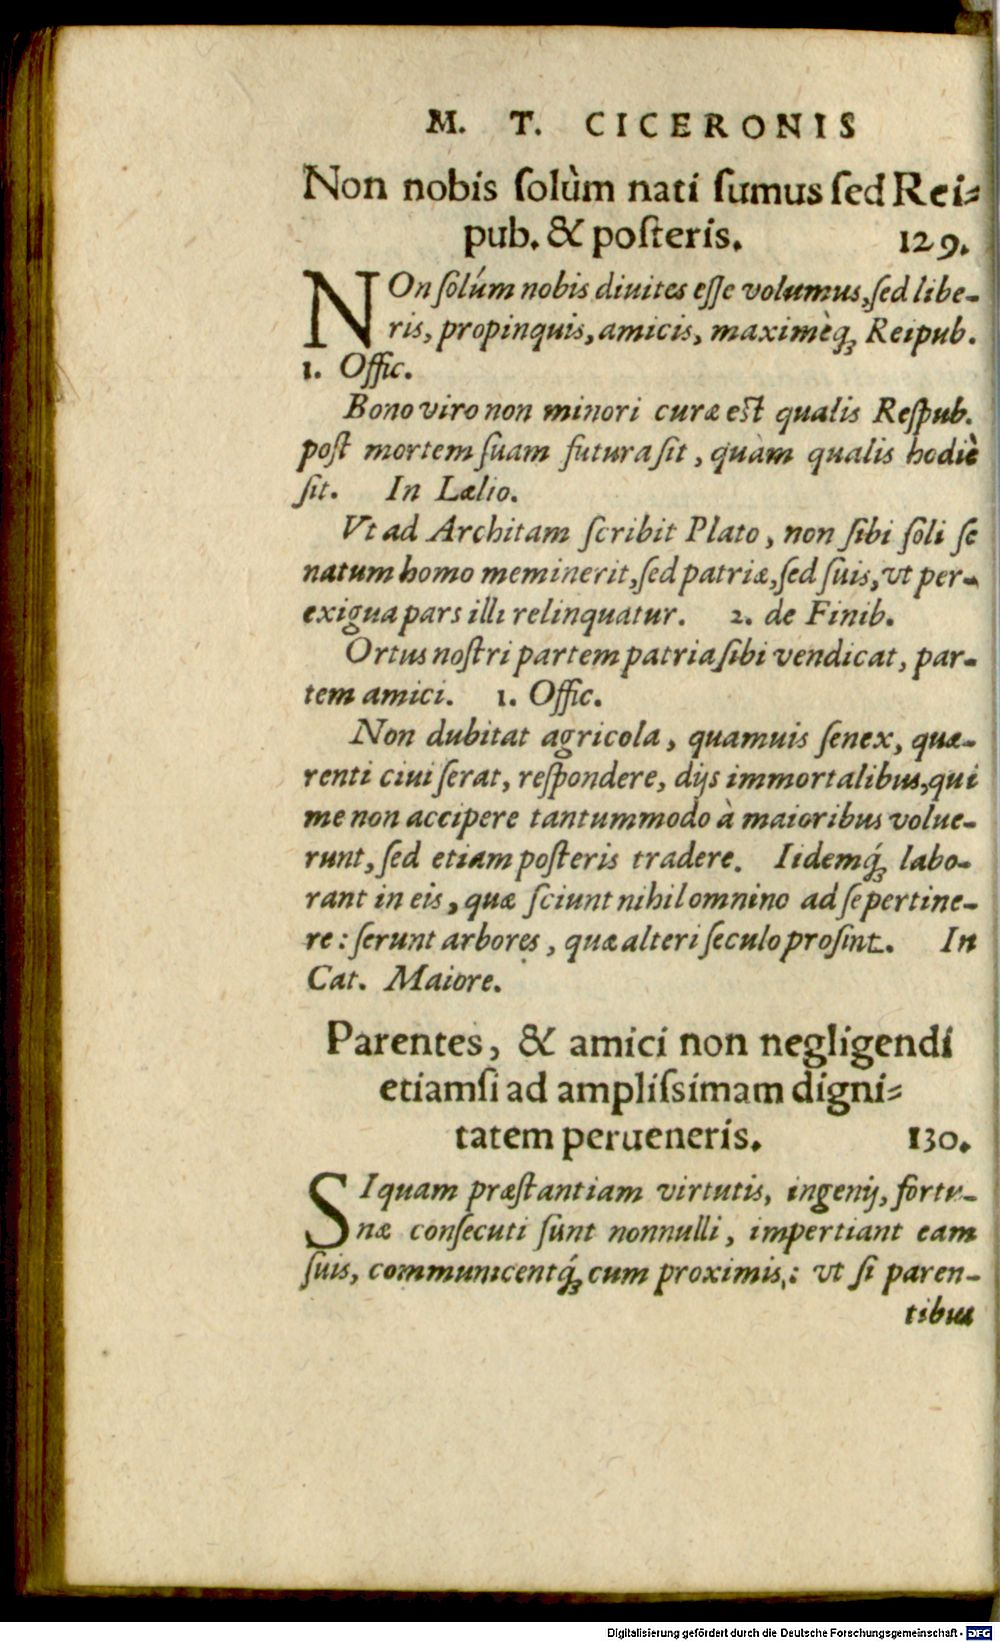 M. T. CICERONIS
Non nobis ſolùm nati ſumus ſed Rei⸗
pub. & poſteris. 129.
NOn ſolúm nobis diuites eſſe volumus, ſed libe-
ris, propinquis, amicis, maximèq́ꝫ Reipub.
1. Offic.
Bono viro non minori curæ eſt qualis Reſpub.
poſt mortem ſuam futura ſit, quàm qualis hodiè
ſit. In Lælio.
Vt ad Architam ſcribit Plato, non ſibi ſoli ſe
natum homo meminerit, ſed patriæ, ſed ſuis, vt per-
exigua pars illi relinquatur. 2. de Finib.
Ortus noſtri partem patria ſibi vendicat, par-
tem amici. 1. Offic.
Non dubitat agricola, quamuis ſenex, quæ-
renti cui ſerat, reſpondere, dijs immortalibus, qui
me non accipere tantummodo à maioribus volue-
runt, ſed etiam poſteris tradere. Iidemq́ꝫ labo-
rant in eis, quæ ſciunt nihil omnino ad ſe pertine-
re: ſerunt arbores, quæ alteri ſeculo proſint. In
Cat. Maiore.
Parentes, & amici non negligendi
etiamſi ad ampliſsimam digni⸗
tatem perueneris. 130.
SI quam præſtantiam virtutis, ingenij, fortu-
næ conſecuti ſunt nonnulli, impertiant eam
ſuis, communicentq́ꝫ cum proximis,: vt ſi paren-
tibus
Digitalisierung gefördert durch die Deutsche Forschungsgemeinschaft - DFG